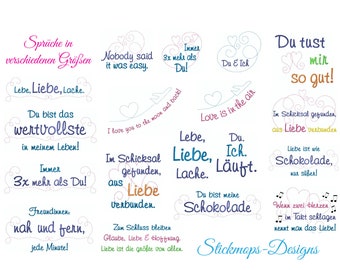 Sprüche in
verschiedenen Größen
Nobody said
it was easy.
Immer
3x mehr als
Du!
Du & Ich
Du tust
mir
so gut!
Lebe, Liebe, Lache.
I love you to the moon and back!
Love is in the Air
Im Schicksal gefunden,
aus Liebe verbunden
Du bist das
wertvollste
in meinem Leben!
Im Schicksal
gefunden,
aus
Liebe
verbunden.
Lebe,
Liebe,
Lache.
Du.
Ich.
Läuft.
Liebe ist wie
Schokolade,
nur süßer!
Immer
3x mehr als Du!
Du bist meine
Schokolade
Freundinnen,
nah und fern,
jede Minute!
Zum Schluss bleiben
Glaube, Liebe & Hoffnung.
Liebe ist die größte von allem.
Wenn zwei Herzen
im Takt schlagen
nennt man das Liebe!
Stickmops-Designs